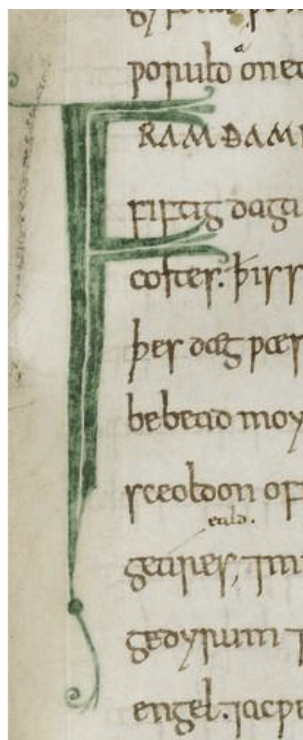 populo one
FRAM ÐAM
fiftig daga
costes. þis s
þes dæg ƿæs
bebead moy
sceoldon of
eald.
geares, ⁊ m
gedyrum ⁊
engel. ⁊ acƿe